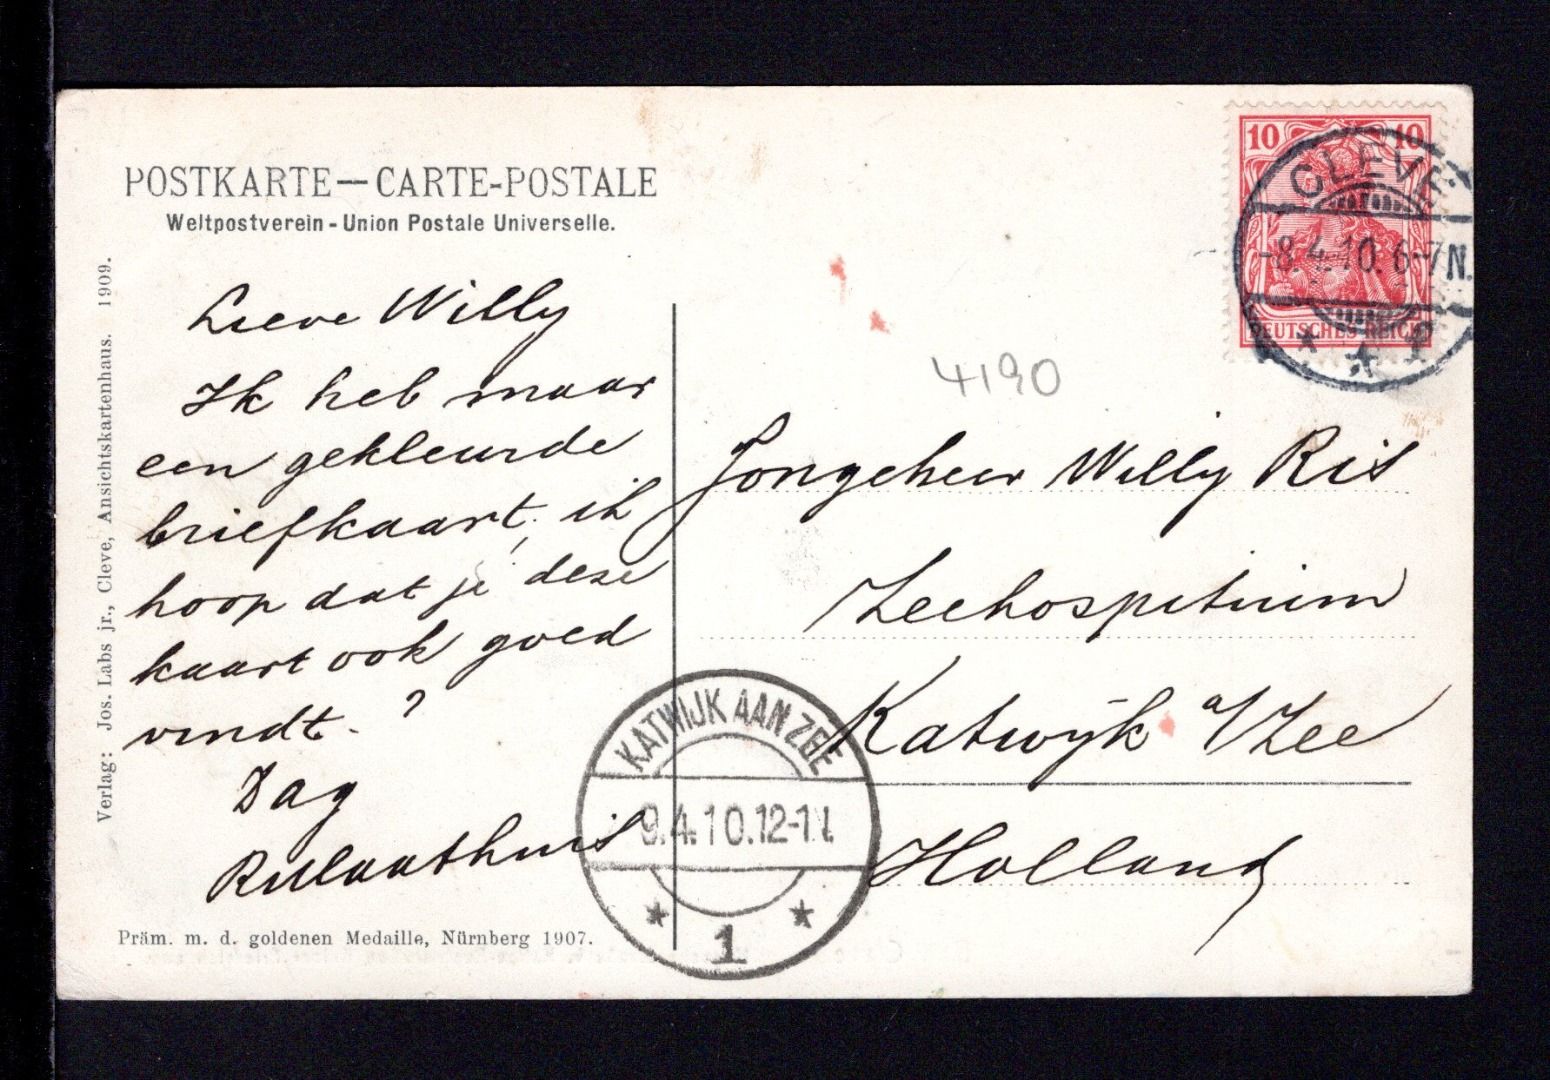 POSTKARTE — CARTE-POSTALE
Weltpostverein - Union Postale Universelle.
Verlag: Jos. Labs jr., Cleve, Ansichtskartenhaus. 1909.
Lieve Willy
Ik heb maar
een gekleurde
briefkaart, ik
hoop dat je deze
kaart ook goed
vindt. ?
Dag
Präm. m. d. goldenen Medaille, Nürnberg 1907.
10 10
DEUTSCHES REICH
CLEVE
-8.4.10.6-7N.
* 1
4190
Jongeheer Willy Ris
Zeehospitium
Katwijk a/Zee
Holland
KATWIJK AAN ZEE
9.4.10.12-1
* 1 *